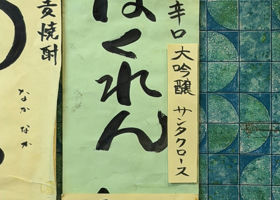 辛口
はくれん
大吟醸 サンタクロース
麦焼酎
なかなか